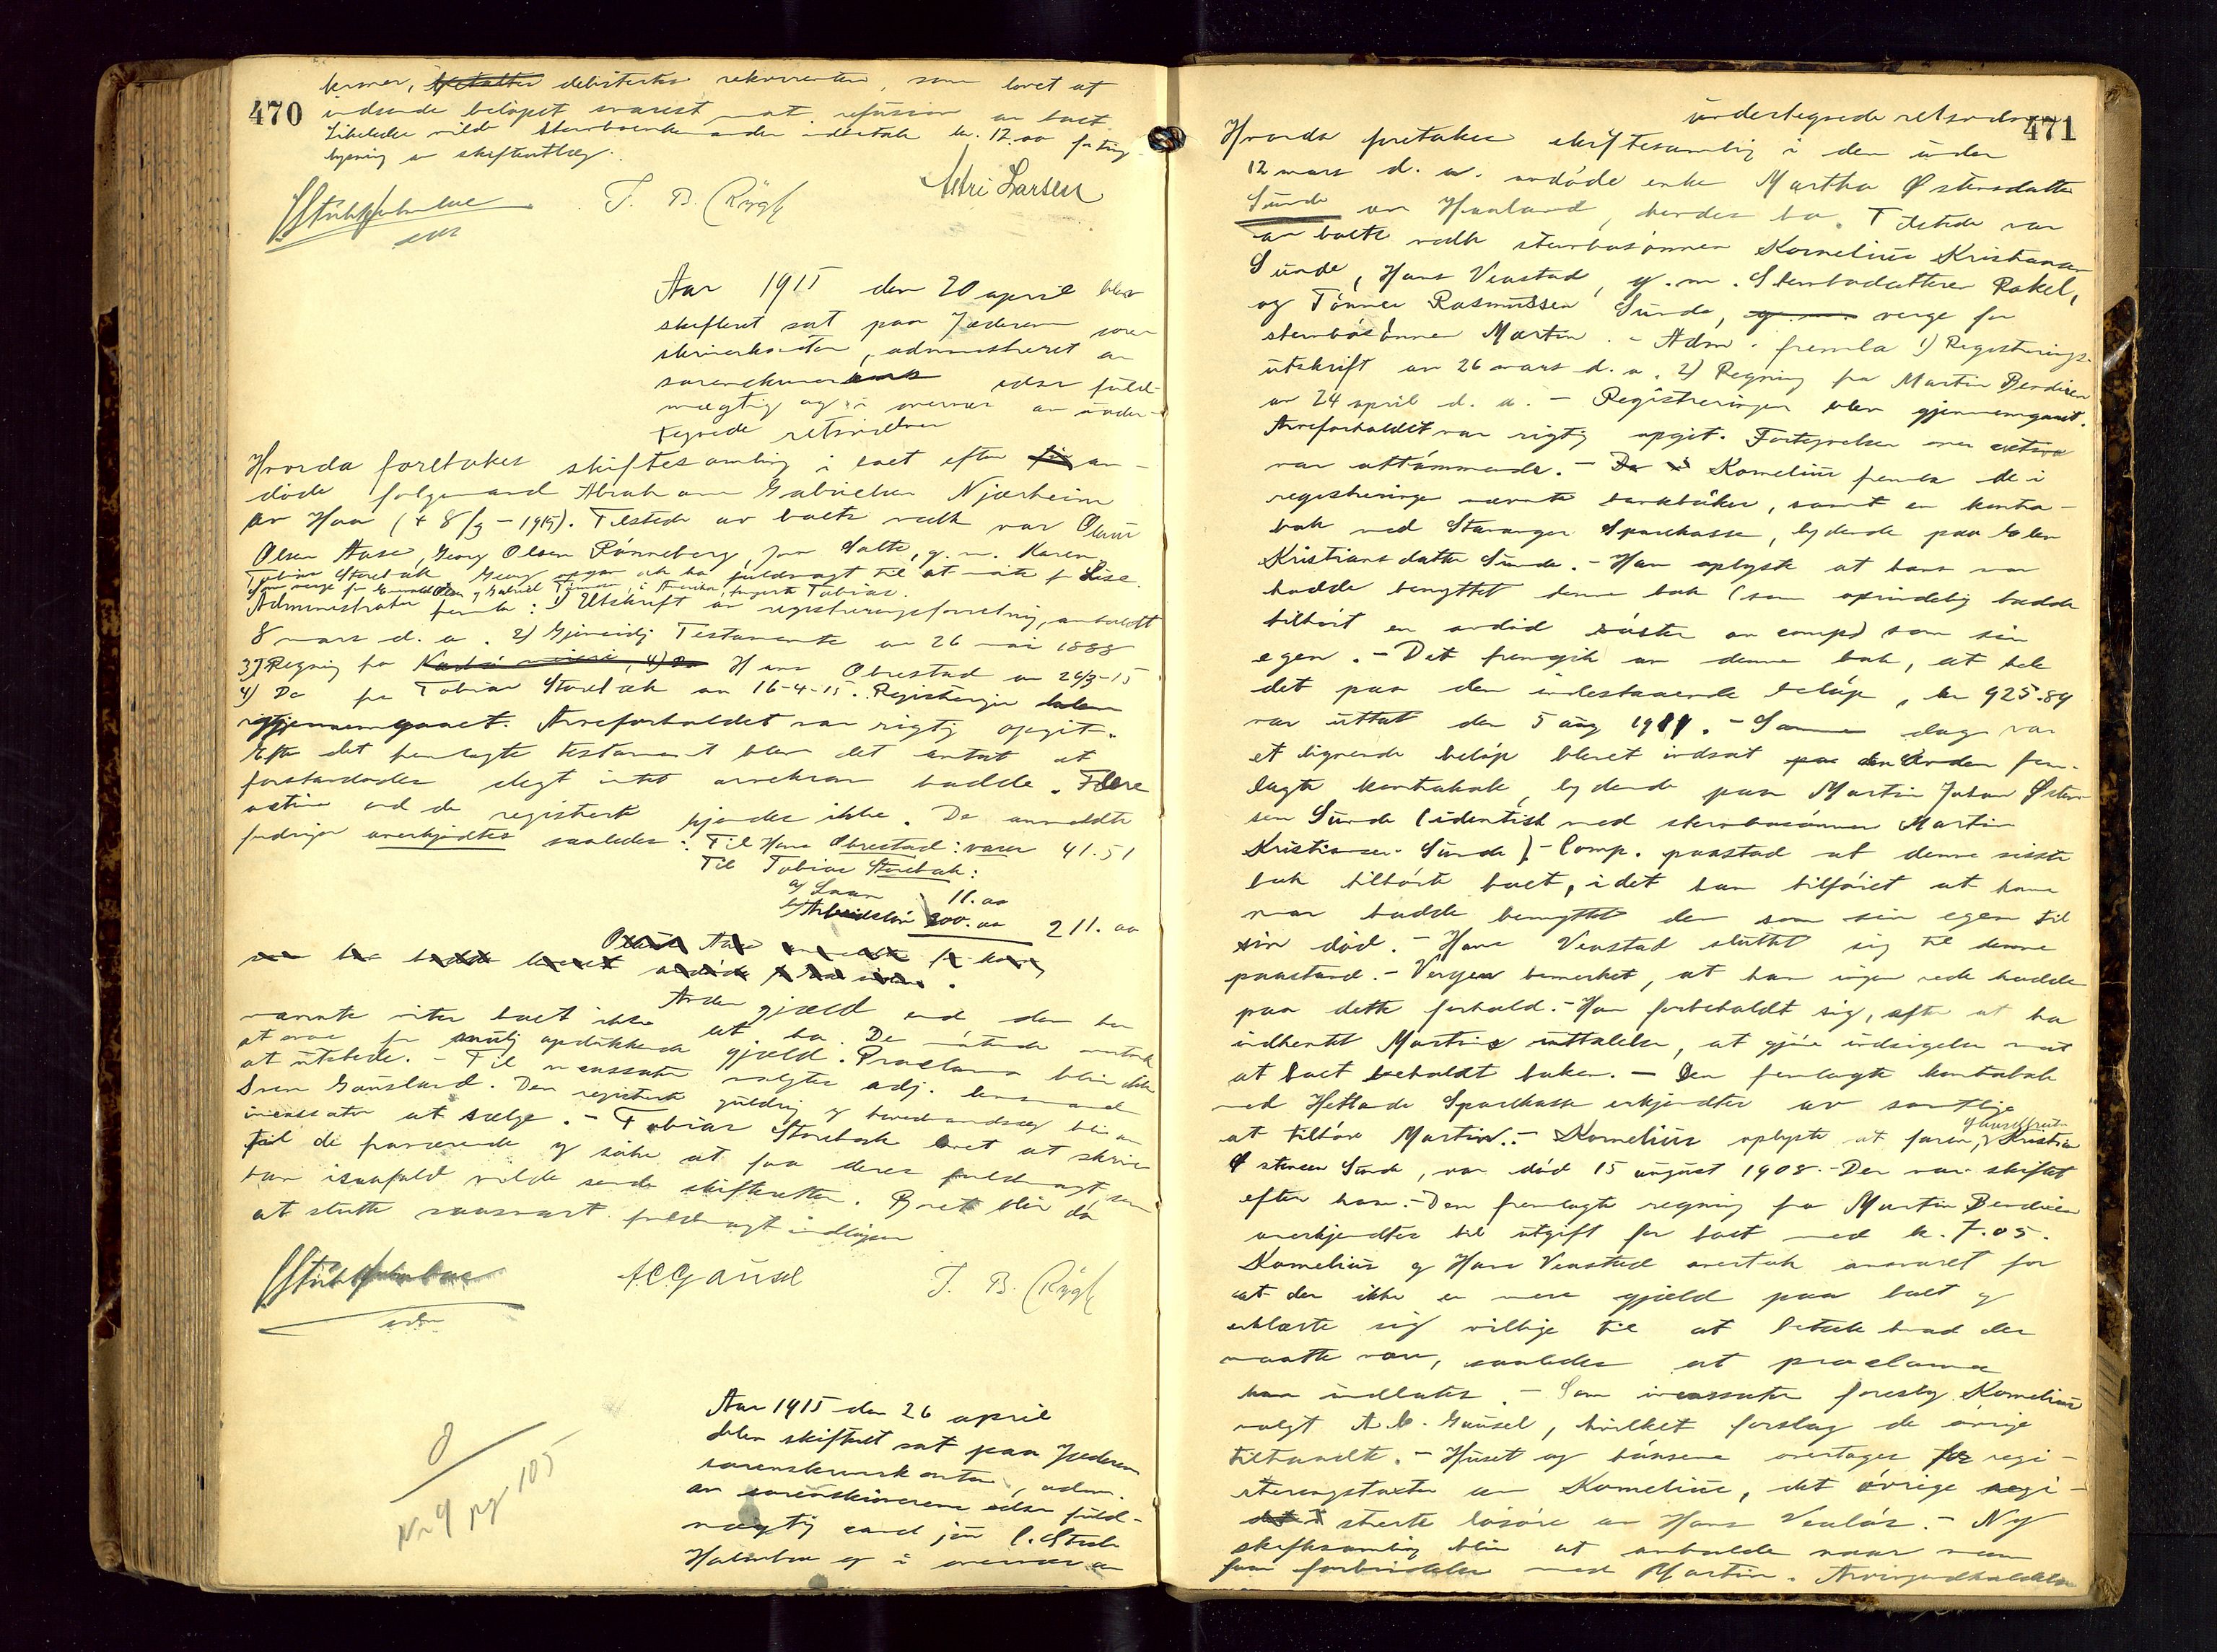 470
debiterte rekvirenten, som lovet at
indsende beløpet snarest mot refusion av boet
Likeledes vilde indbetale kr. 12.00 for ting-
lysning av skifteutlæg.
T. B. Rygh
Larsen
Aar 1915 den 20 april blev
skifteret sat paa Jæderen soren
skriverkontor, administreret av
sorenskriverens edsv fuld-
mægtig og i overvær av under-
tegnede retsvidner
Hvorda foretokes skiftesamling i boet efter an-
døde Abraham Gabrielsen Njærheim
av Haa († 8/3 - 1915). Tilstede av boets vedk var Olaus
Olsen Aase, Georg Olsen Rønneberg, Jon Salte, g. m. Karen,
Tobias Storebak. Georg opgav at ha fuldmagt til at møte for Lise.
Administrator fremla: 1) Utskrift av registreringsforretning, avholdt
8 mars d. a. 2) Gjensidig Testamente av 26 mai 1888
3) Regning fra Hans Obrestad av 26/3-15
4) Do fra Tobias Storebak av 16-4-15. Registeringen blev
gjennemgaaet. Arveforholdet var rigtig opgit.
Efter det fremlagte testament blev det antat at
førstavdødes slegt intet arvekrav hadde. Flere
activa end de registrerte kjendes ikke. De anmeldte
fordringer anerkjendtes saaledes: Til Hans Obrestad: varer 41.51
Til Tobias Storebak:
a) Laan 11.00
b) Arbeidsløn 200.00 211.00
Anden gjæld end den her
nævnte viter boet ikke at ha. De møtende overtok
at svare for mulig opdukkende gjæld. Proclama blir ikke
at utstede. - Til incassator valgtes adj. lensmand
Sven Gausland. Den registrerte fordring og bankindskud blir av
incassator at sælge. - Tobias Storebak lovet at skrive
til de fraværende og søke at faa deres fuldmagt, som
han isaafald vilde sende skifteretten. Boet blir da
at slutte saasnart fuldmagt indløper
A C Gausel
T. B. Rygh
0
Nr 4 pg 105
Aar 1915 den 26 april
blev skifteret sat paa Jæderen
sorenskriverkontor, adm.
av sorenskriverens edsv fuld-
mægtig cand jur C. Stub
Holmboe og i overvær av
471
undertegnede retsvidner
Hvorda foretokes skiftesamling i den under
12 mars d. a. avdøde enke Martha Østensdatter
Sunde av Haaland, hendes bo. Tilstede var
av boets vedk stervbosønnen Kornelius Kristiansen
Sunde, Hans Veastad, g. m. Stervbodatteren Rakel,
og Tønnes Rasmussen Sunde, verge for
stervbosønnen Martin. - Adm. fremla 1) Registrerings-
utskrift av 26 mars d. a. 2) Regning fra Martin Bendixen
av 24 april d. a. - Registreringen blev gjennemgaaet.
Arveforholdet var rigtig opgit. Fortegnelsen over activa
var uttømmende. - Kornelius fremla de i
registreringen nævnte bankbøker, samt en kontra-
bok med Stavanger Sparekasse, lydende paa
Kristiansdatter Sunde. - Han oplyste at hans mor
hadde benyttet denne bok (som oprindelig hadde
tilhørt en avdød søster av comp) som sin
egen. - Det fremgik av denne bok, at hele
det paa den indestaaende beløp, kr 925.84
var uttat den 5 aug 1911. - Samme dag var
et lignende beløp blevet indsat paa den anden frem-
lagte kontrabok, lydende paa Martin Johan Østen-
sen Sunde (identisk med stervbosønnen Martin
Kristiansen Sunde). - Comp. paastod at denne sisste
bok tilhørte boet, idet han tilføiet at hans
mor hadde benyttet den som sin egen til
sin død. - Hans Veastad sluttet sig til denne
paastand. - Vergen bemerket, at han ingen rede hadde
paa dette forhold. - Han forbeholdt sig, efter at ha
indhentet Martins uttalelse, at gjøre indsigelse mot
at boet beholdt boken. - Den fremlagte kontrabok
med Hetlands Sparekasse erkjendtes av samtlige
at tilhøre Martin. - Kornelius oplyste at faren, Kristian
Østensen Sunde, var død 15 august 1908. - Der var skiftet
efter ham. - Den fremlagte regning fra Martin Bendixen
anerkjendtes til utgift for boet med kr. 7.05.
Kornelius og Hans Veastad overtok ansvaret for
at der ikke er mere gjæld paa boet og
erklærte sig villige til at betale hvad der
maatte være, saaledes at proclama
kan undlates. - Som incassator foreslog Kornelius
valgt A. C. Gausel, hvilket forslag de øvrige
tiltraadte. - Huset og hønsene overtages for regi-
streringstakster av Kornelius, det øvrige regi-
strerte løsøre av Hans - Ny
skiftesamling blir at avholde naar man
faar forbindelse med Martin.